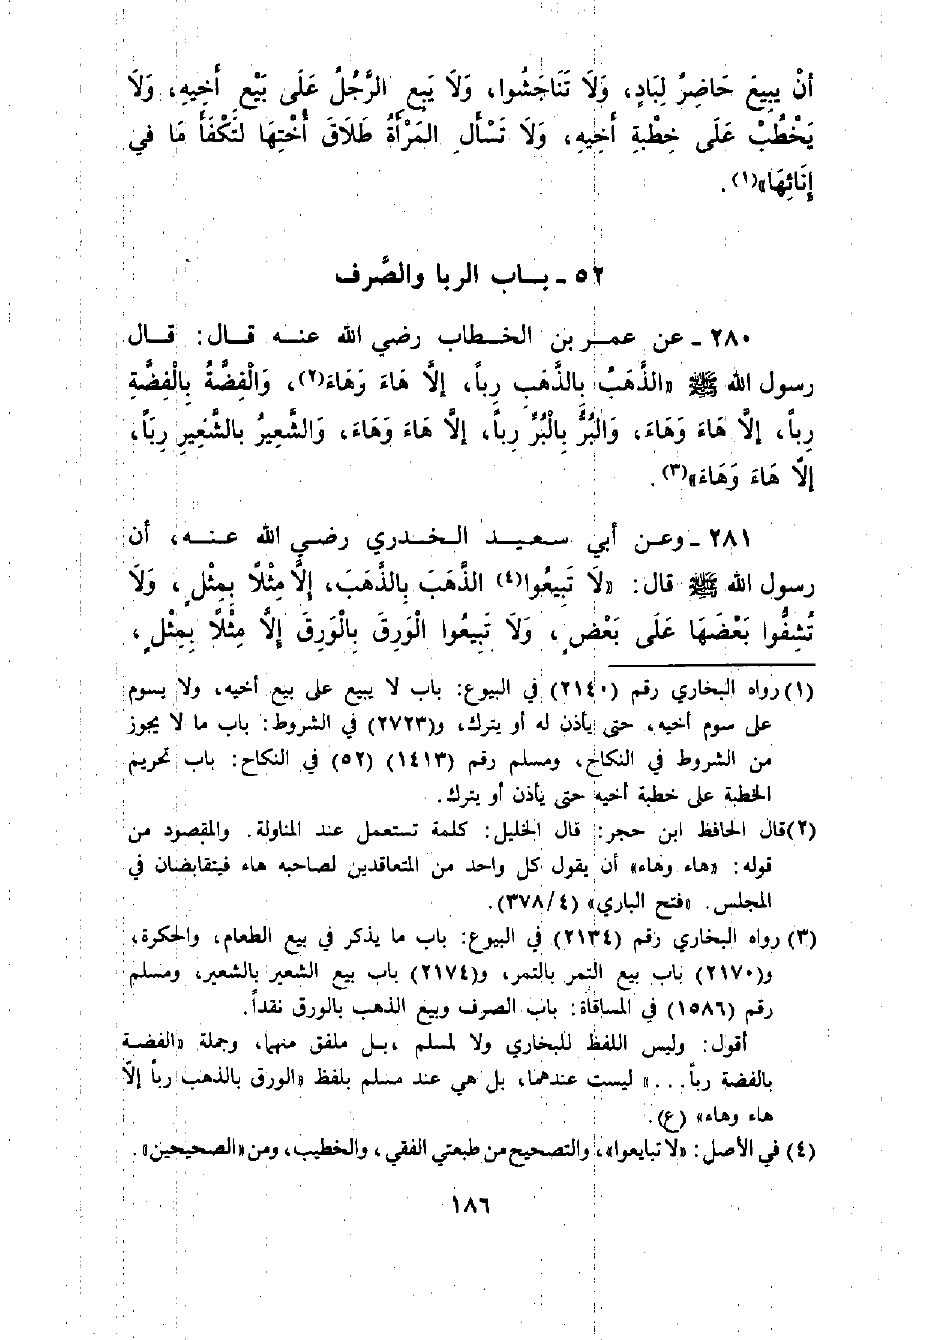 أنْ يبِيعَ حَاضِرٌ لِبَادٍ، وَلَا تَنَاجَشُوا، وَلَا يَبِعِ الرَّجُلُ عَلَى بَيْعِ أَخِيهِ، وَلَا
يَخْطُبْ عَلَى خِطْبةِ أَخِيهِ، وَلَا تَسْأَلِ المَرْأَةُ طَلَاقَ أُخْتِهَا لتَكْفَأَ مَا في
إنَائِهَا»(١).
٥٢ - بـاب الربا والصَّرف
٢٨٠ - عن عمـر بن الخـطاب رضي الله عنـه قـال: قـال
رسول الله ﷺ «الذَّهَبُ بالذَّهَبِ رِباً، إلَّا هَاءَ وَهَاءَ(٢)، وَالْفِضَّةُ بِالْفِضَّةِ
رِباً، إلَّا هَاءَ وَهَاءَ، وَالبُرُّ بِالْبُرِّ رِباً، إلَّا هَاءَ وَهَاءَ، وَالشَّعِيرُ بالشَّعِيرِ رِبَاً،
إلَّا هَاءَ وَهَاءَ»(٣).
٢٨١ - وعـن أبي سـعيـد الـخدري رضـي الله عـنـه، أن
رسول الله ﷺ قال: «لَا تَبِيعُوا(٤) الذَّهَبَ بِالذَّهَبَ، إلَّا مِثْلًا بِمِثْلٍ، وَلَا
تُشِفُّوا بَعْضَهَا عَلَى بَعْضٍ، وَلَا تَبِيعُوا الْوَرِقَ بِالْوَرِقَ إلَّا مِثْلًا بِمِثْلٍ،
(١) رواه البخاري رقم (٢١٤٠) في البيوع: باب لا يبيع على بيع أخيه، ولا يسوم
على سوم أخيه، حتى يأذن له أو يترك، و(٢٧٢٣) في الشروط: باب ما لا يجوز
من الشروط في النكاح، ومسلم رقم (١٤١٣) (٥٢) في النكاح: باب تحريم
الخطبة على خطبة أخيه حتى يأذن أو يترك.
(٢) قال الحافظ ابن حجر: قال الخليل: كلمة تستعمل عند المناولة. والمقصود من
قوله: «هاء وهاء» أن يقول كل واحد من المتعاقدين لصاحبه هاء فيتقابضان في
المجلس. «فتح الباري» (٣٧٨/٤).
(٣) رواه البخاري رقم (٢١٣٤) في البيوع: باب ما يذكر في بيع الطعام، والحكرة،
و(٢١٧٠) باب بيع التمر بالتمر، و(٢١٧٤) باب بيع الشعير بالشعير، ومسلم
رقم (١٥٨٦) في المساقاة: باب الصرف وبيع الذهب بالورق نقداً.
أقول: وليس اللفظ للبخاري ولا لمسلم، بـل ملفق منهما، وجملة «الفضـة
بالفضة رباً...» ليست عندهما، بل هي عند مسلم بلفظ «الورق بالذهب رباً إلّا
هاء وهاء» (ع).
(٤) في الأصل: «لا تبايعوا»، والتصحيح من طبعتي الفقي، والخطيب، ومن «الصحيحين».
١٨٦